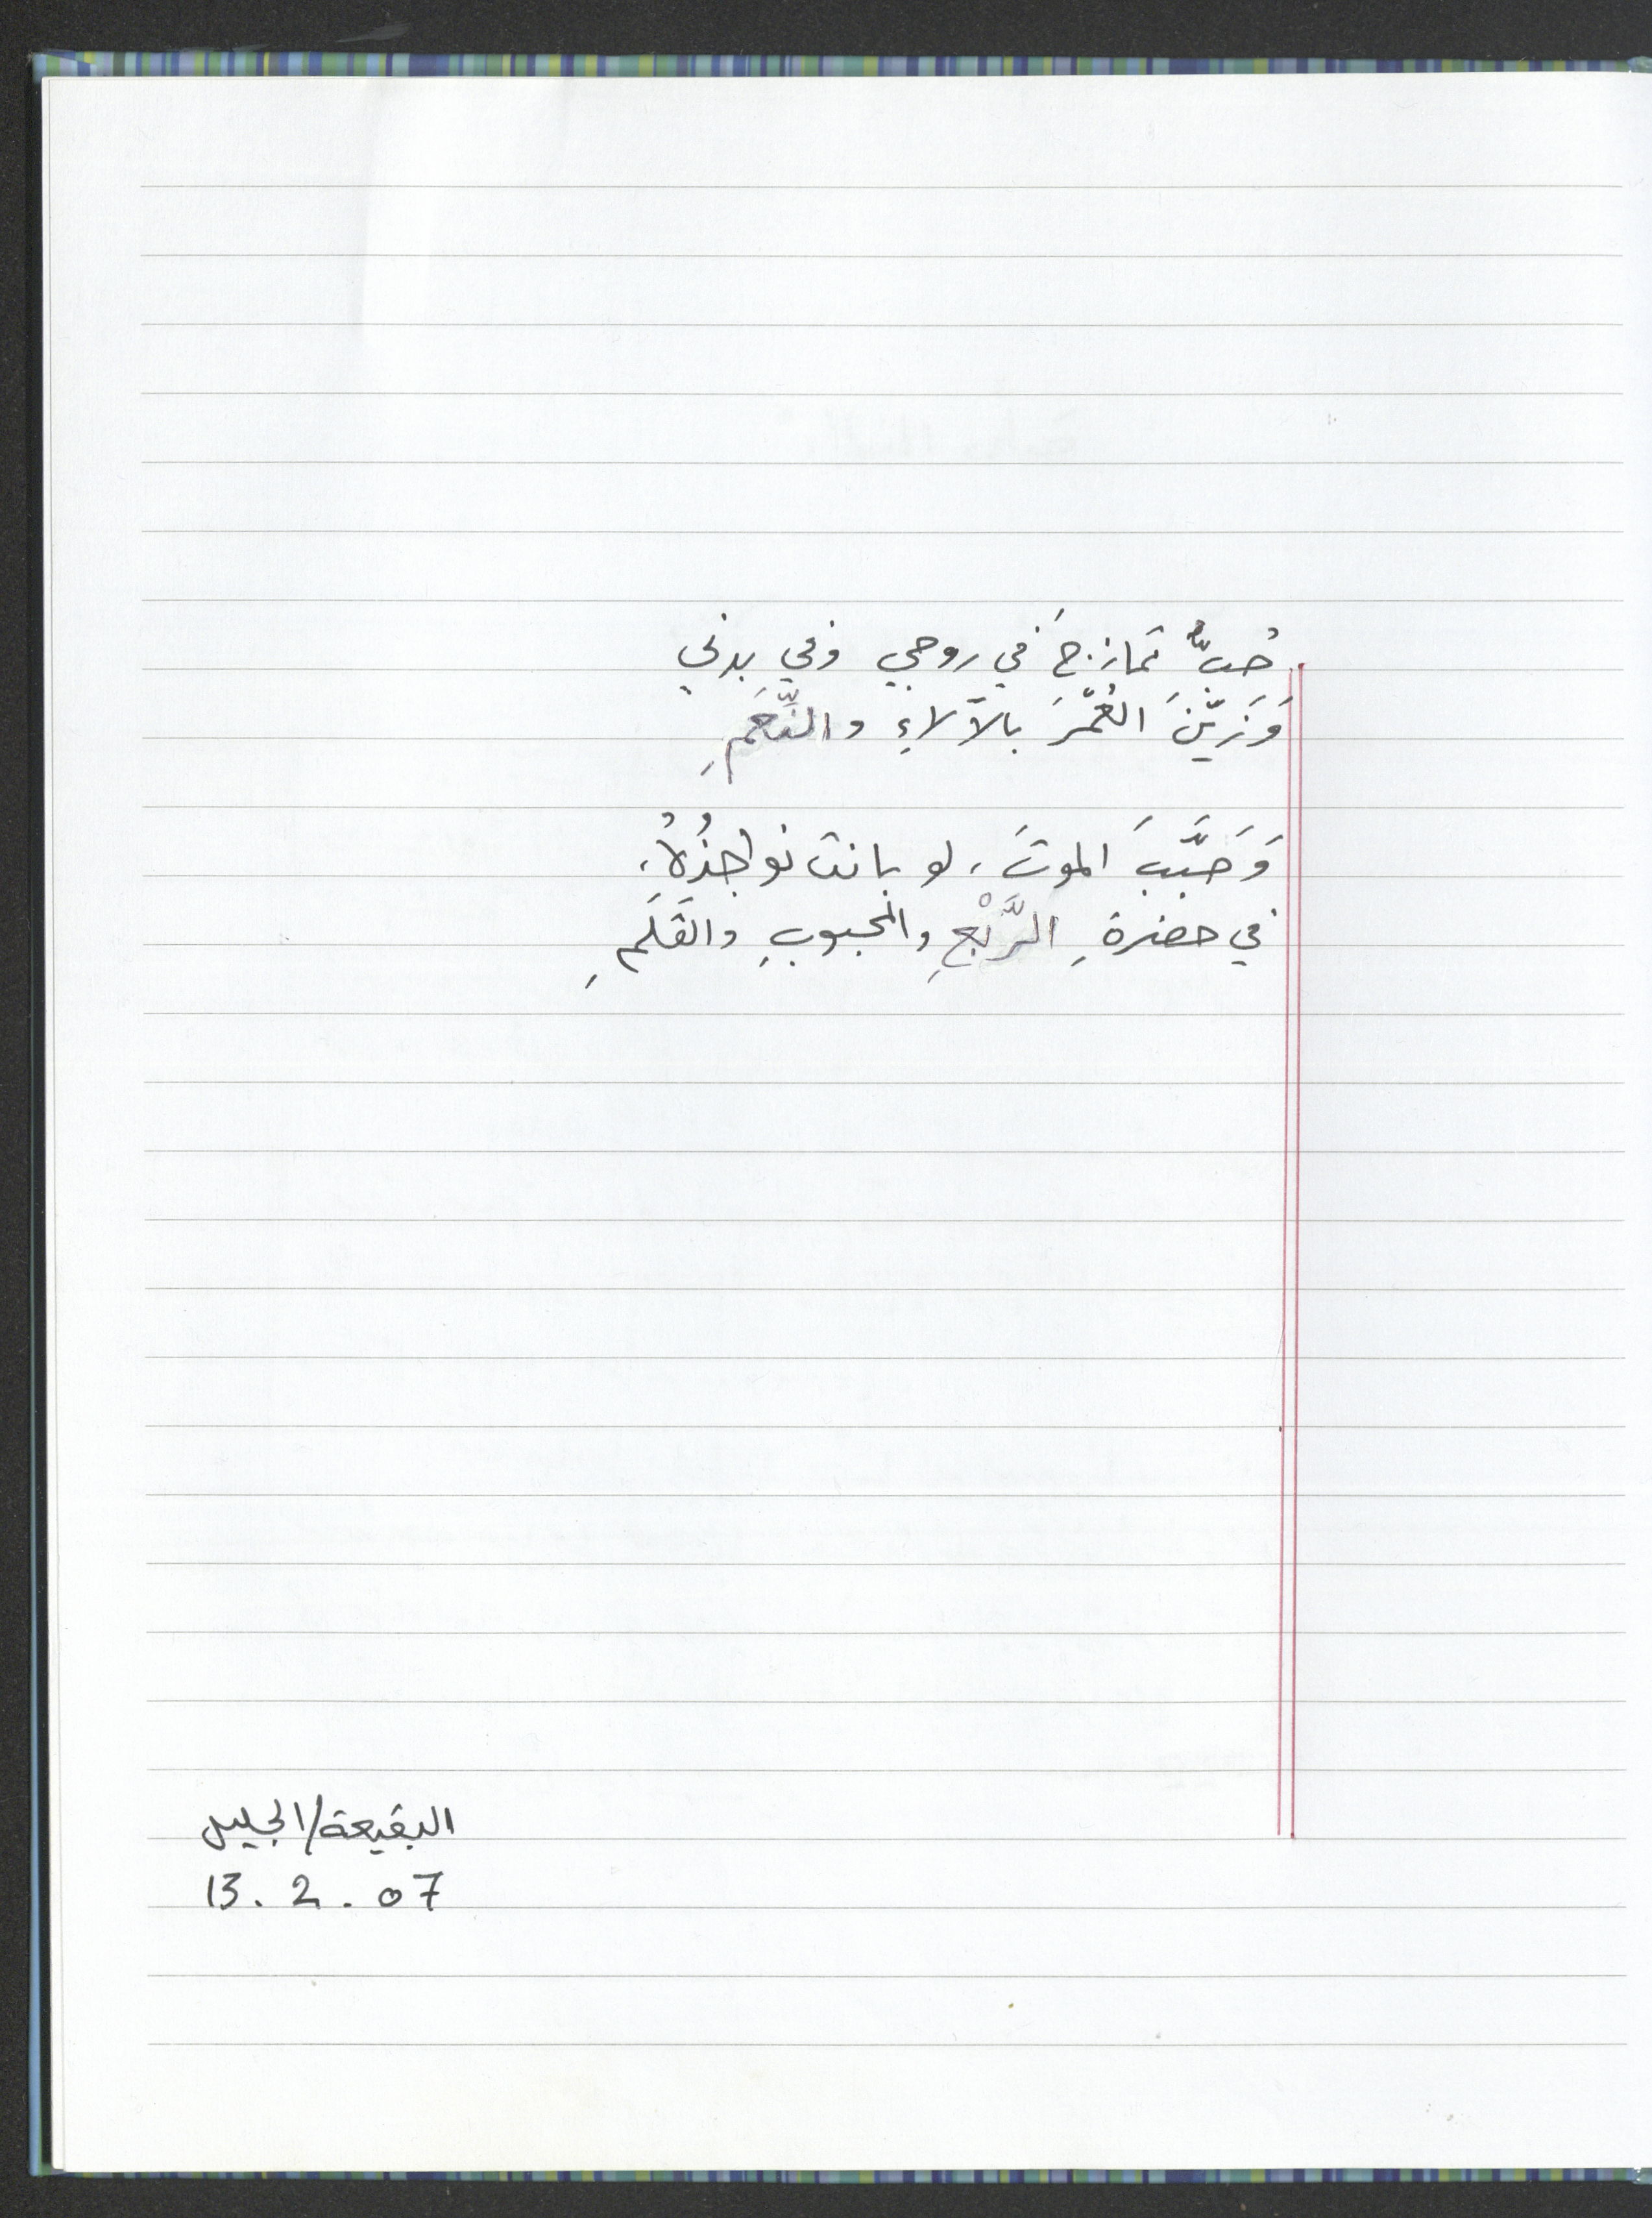 حُبٌّ تمازجَ في روحي وفي بدني
وَزَيَّنَ العُمْرَ بالآلاءِ والنِّعَمِ
وَحَبَّبَ الموتَ، لو بانت نواجذُهُ،
في حضرةِ الرَّبْعِ والمحبوبِ والقَلَمِ
البقيعة/الجليل
13.2.07